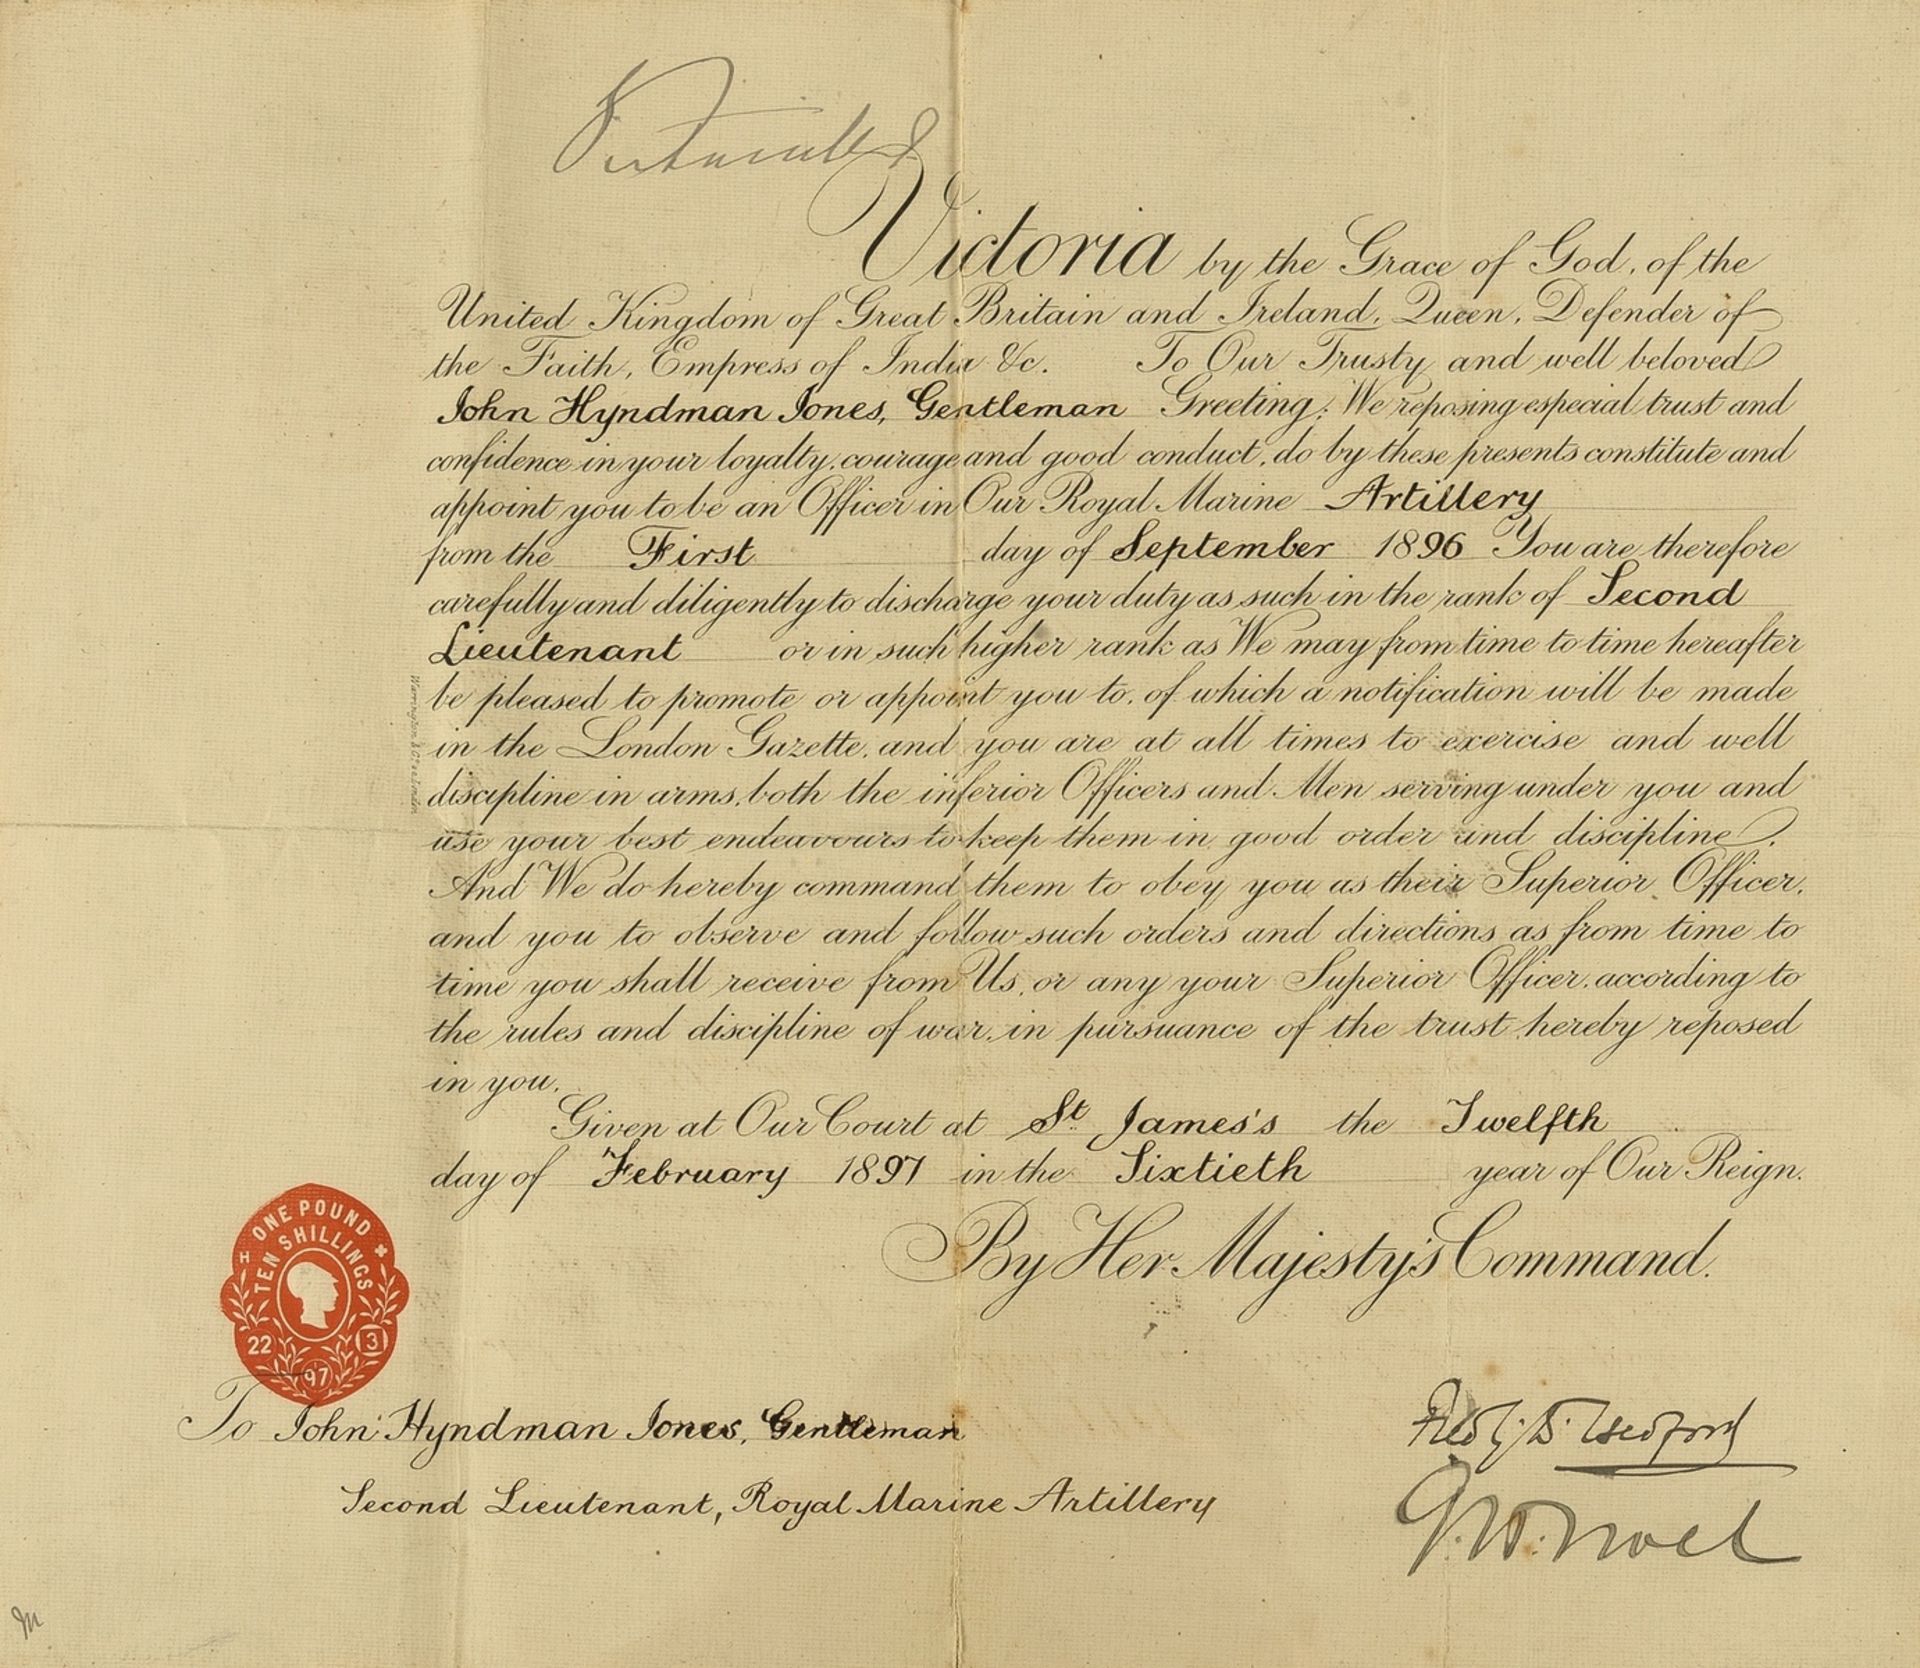 Victoria by the Grace of God, of the
United Kingdom of Great Britain and Ireland, Queen, Defender of
the Faith, Empress of India &c. To Our Trusty and well beloved
John Hyndman Jones, Gentleman Greeting: We reposing especial trust and
confidence in your loyalty, courage and good conduct, do by these presents constitute and
appoint you to be an Officer in Our Royal Marine Artillery
from the First day of September 1896 You are therefore
carefully and diligently to discharge your duty as such in the rank of Second
Lieutenant or in such higher rank as We may from time to time hereafter
be pleased to promote or appoint you to, of which a notification will be made
in the London Gazette, and you are at all times to exercise and well
discipline in arms, both the inferior Officers and Men serving under you and
use your best endeavours to keep them in good order and discipline.
And We do hereby command them to obey you as their Superior Officer,
and you to observe and follow such orders and directions as from time to
time you shall receive from Us, or any your Superior Officer, according to
the rules and discipline of war, in pursuance of the trust hereby reposed
in you.
Given at Our Court at St. James's the Twelfth
day of February 1897 in the Sixtieth year of Our Reign.
By Her Majesty's Command.
ONE POUND
TEN SHILLINGS
H
22 3
97
To John Hyndman Jones, Gentleman
Second Lieutenant, Royal Marine Artillery
G. W. Noel